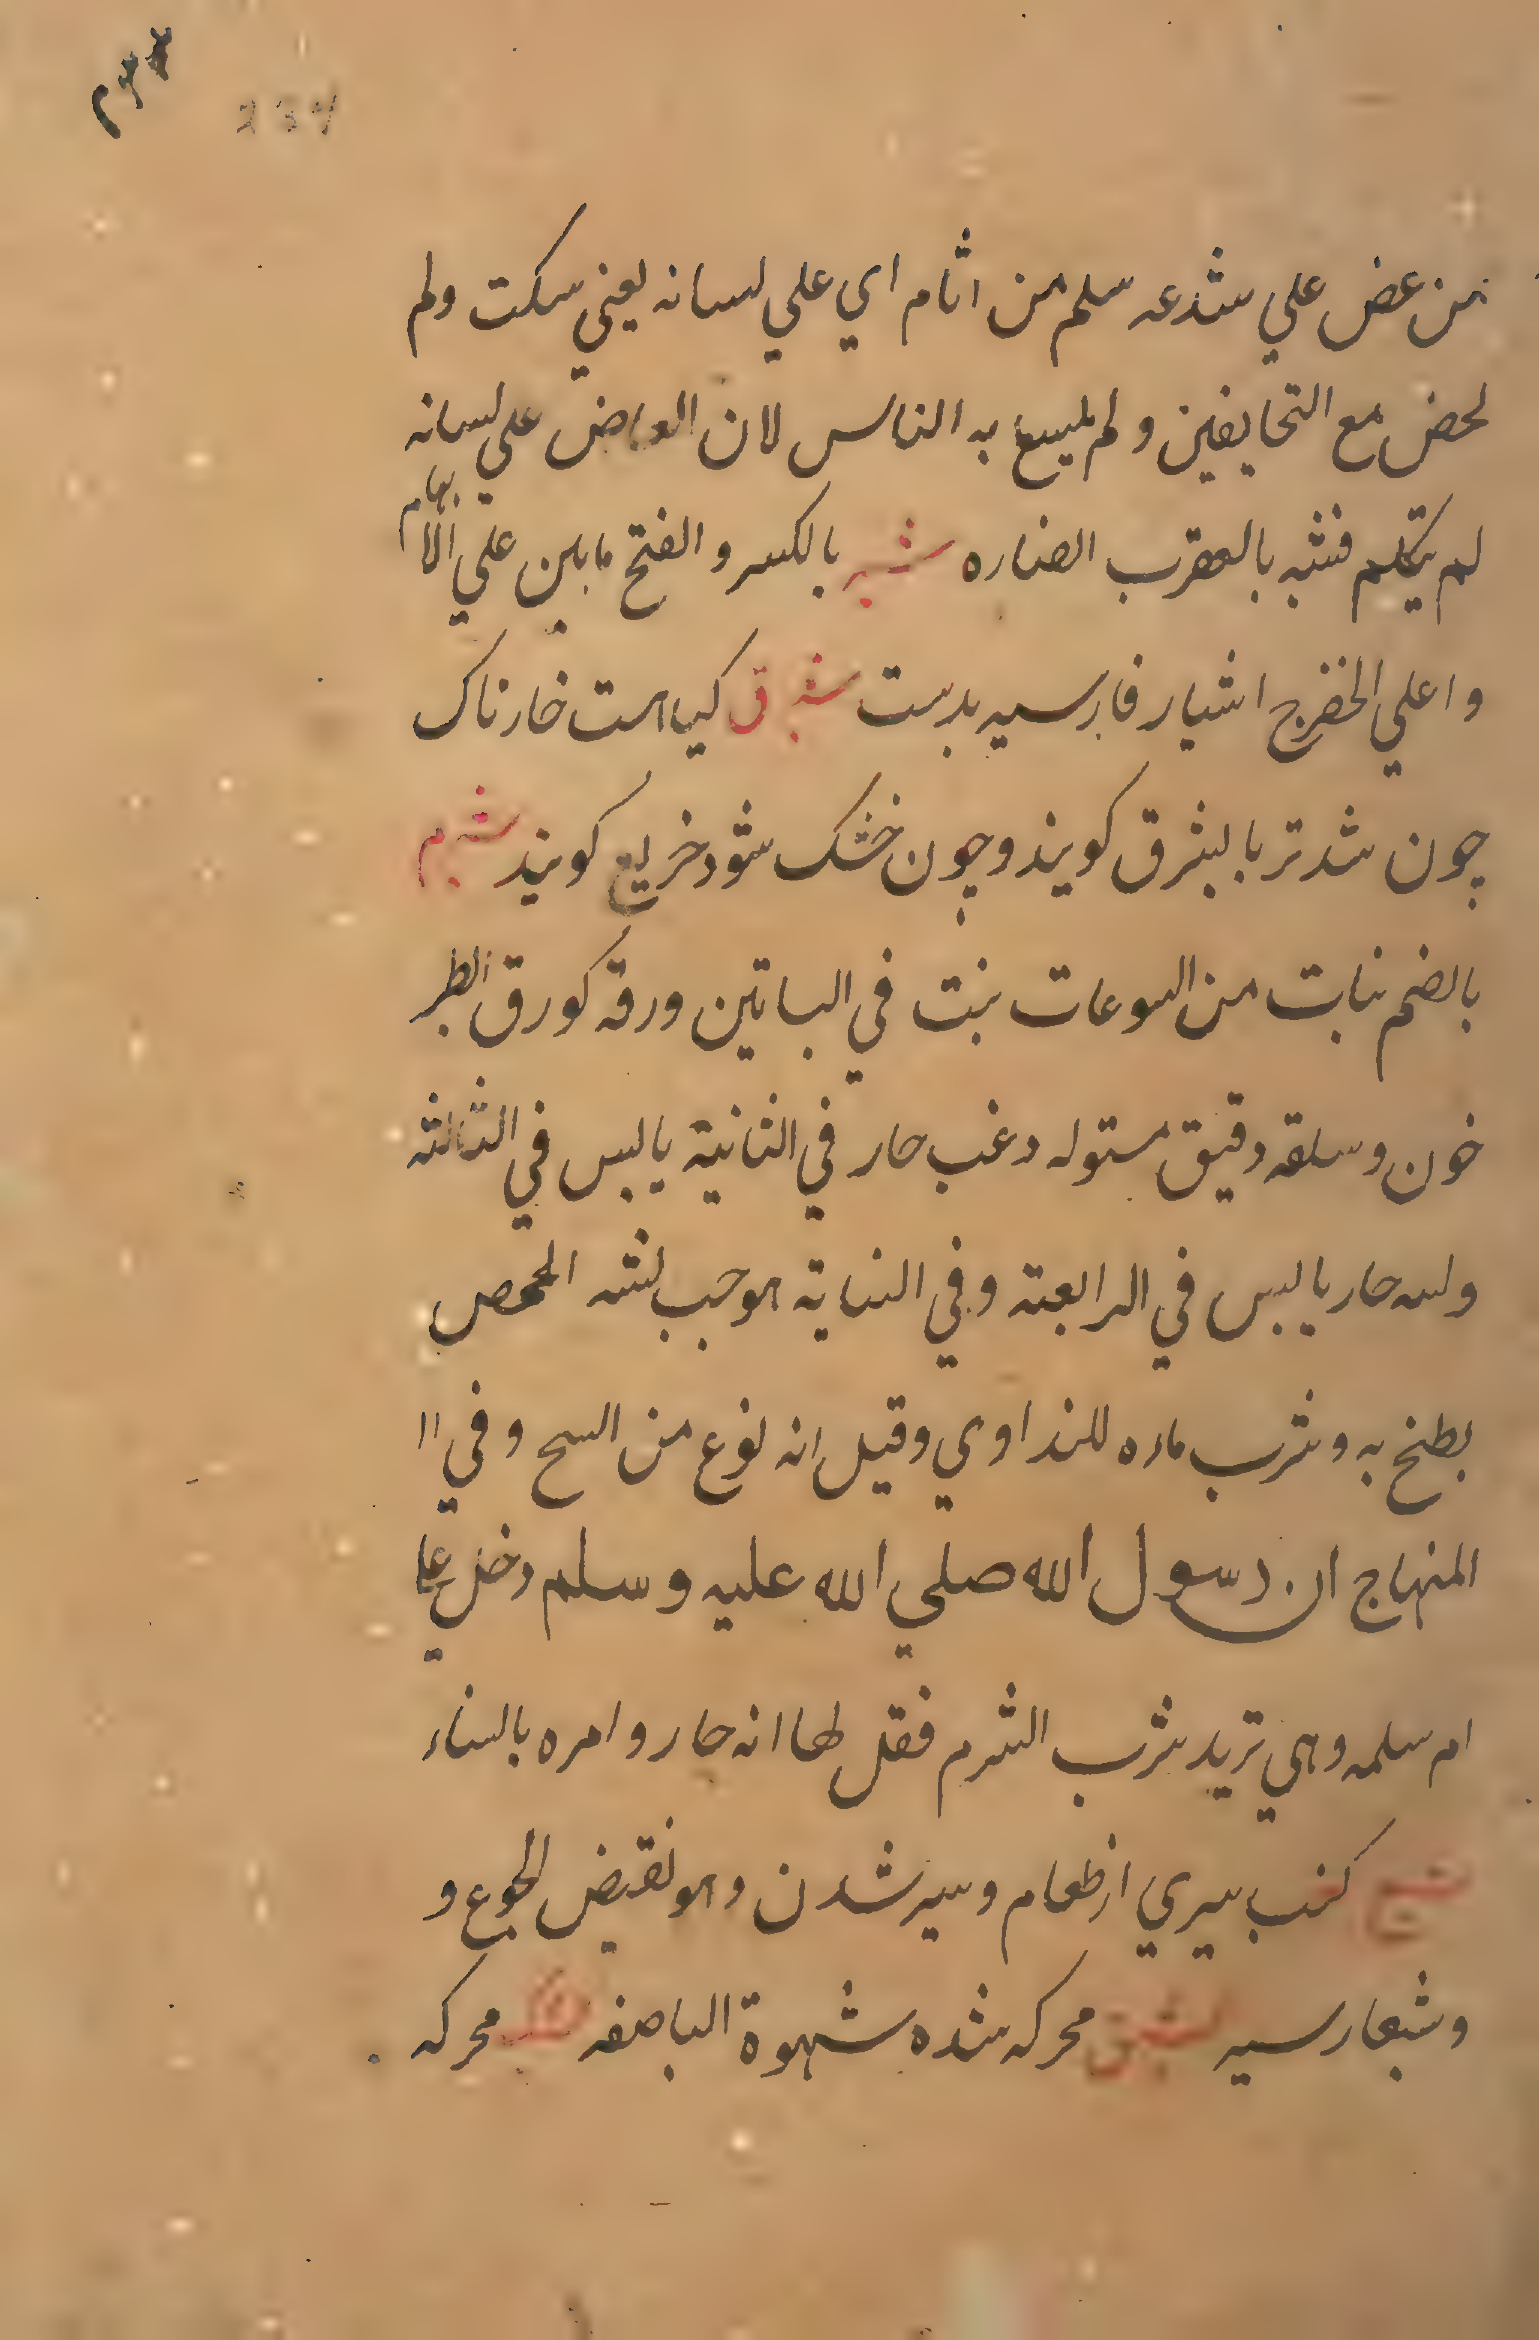 ۲۳۴
234
من عض علي شدعه سلم من اثام اي علي لسانه يعني سكت ولم
لحض مع التحايفين ولم يليسع به الناس لان العاض علي لسانه
لم يتكلم فشبه بالعقرب الضاره شبر بالكسر والفتح مابين علي الابهام
واعلي الخضرج اشبار فارسيه بدست شبرق كياهست خارناك
چون شدتر با لبثرق كويند وچون خشك شود خريع كويند شبرم
بالضم نبات من السوعات ينبت في الباتين ورقه كورق الطر
خون وسلقه دقيق مستوله دغب حار في الثانية يالبس في الثالثه
ولسه حار يا لبس في الرابعته وفي النباية هوحب لشه الحمص
بطبخ به وشرب ماره للنداوي وقيل انه نوع من السح وفي
المنهاج ان رسول الله صلي الله عليه وسلم دخل علي
ام سلمه وهي تريد شرب الشرم فقل لها انه حار وامره بالسناء
شبع كنب سيري ازطعام وسيرشدن وهو نقيض الجوع و
وشبعارسيه شبق محركه شده شهوة الباصفه محركه